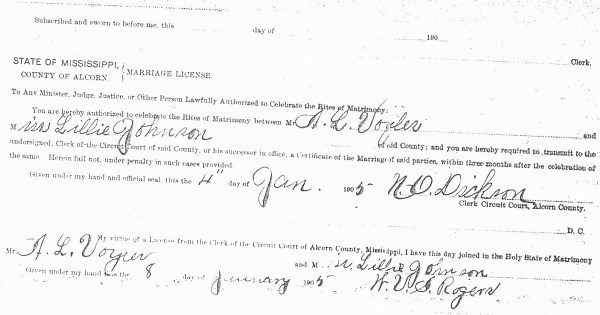 Subscribed and sworn to before me, this day of 190
Clerk.
STATE OF MISSISSIPPI,
COUNTY OF ALCORN.
MARRIAGE LICENSE.
To Any Minister, Judge, Justice, or Other Person Lawfully Authorized to Celebrate the Rites of Matrimony:
You are hereby authorized to celebrate the Rites of Matrimony between Mr. A. L. Voyles and
Miss Lillie Johnson of said County; and you are hereby required to transmit to the
undersigned, Clerk of the Circuit Court of said County, or his successor in office, a Certificate of the Marriage of said parties, within three months after the celebration of
the same. Herein fail not, under penalty in such cases provided.
Given under my hand and official seal, this the 4" day of Jan. 1905 N. O. Dickson
Clerk Circuit Court, Alcorn County.
D. C.
By virtue of a License from the Clerk of the Circuit Court of Alcorn County, Mississippi, I have this day joined in the Holy State of Matrimony
Mr. A. L. and Miss Lillie Johnson
Given under my hand the 8 day of January 1905 Rogers